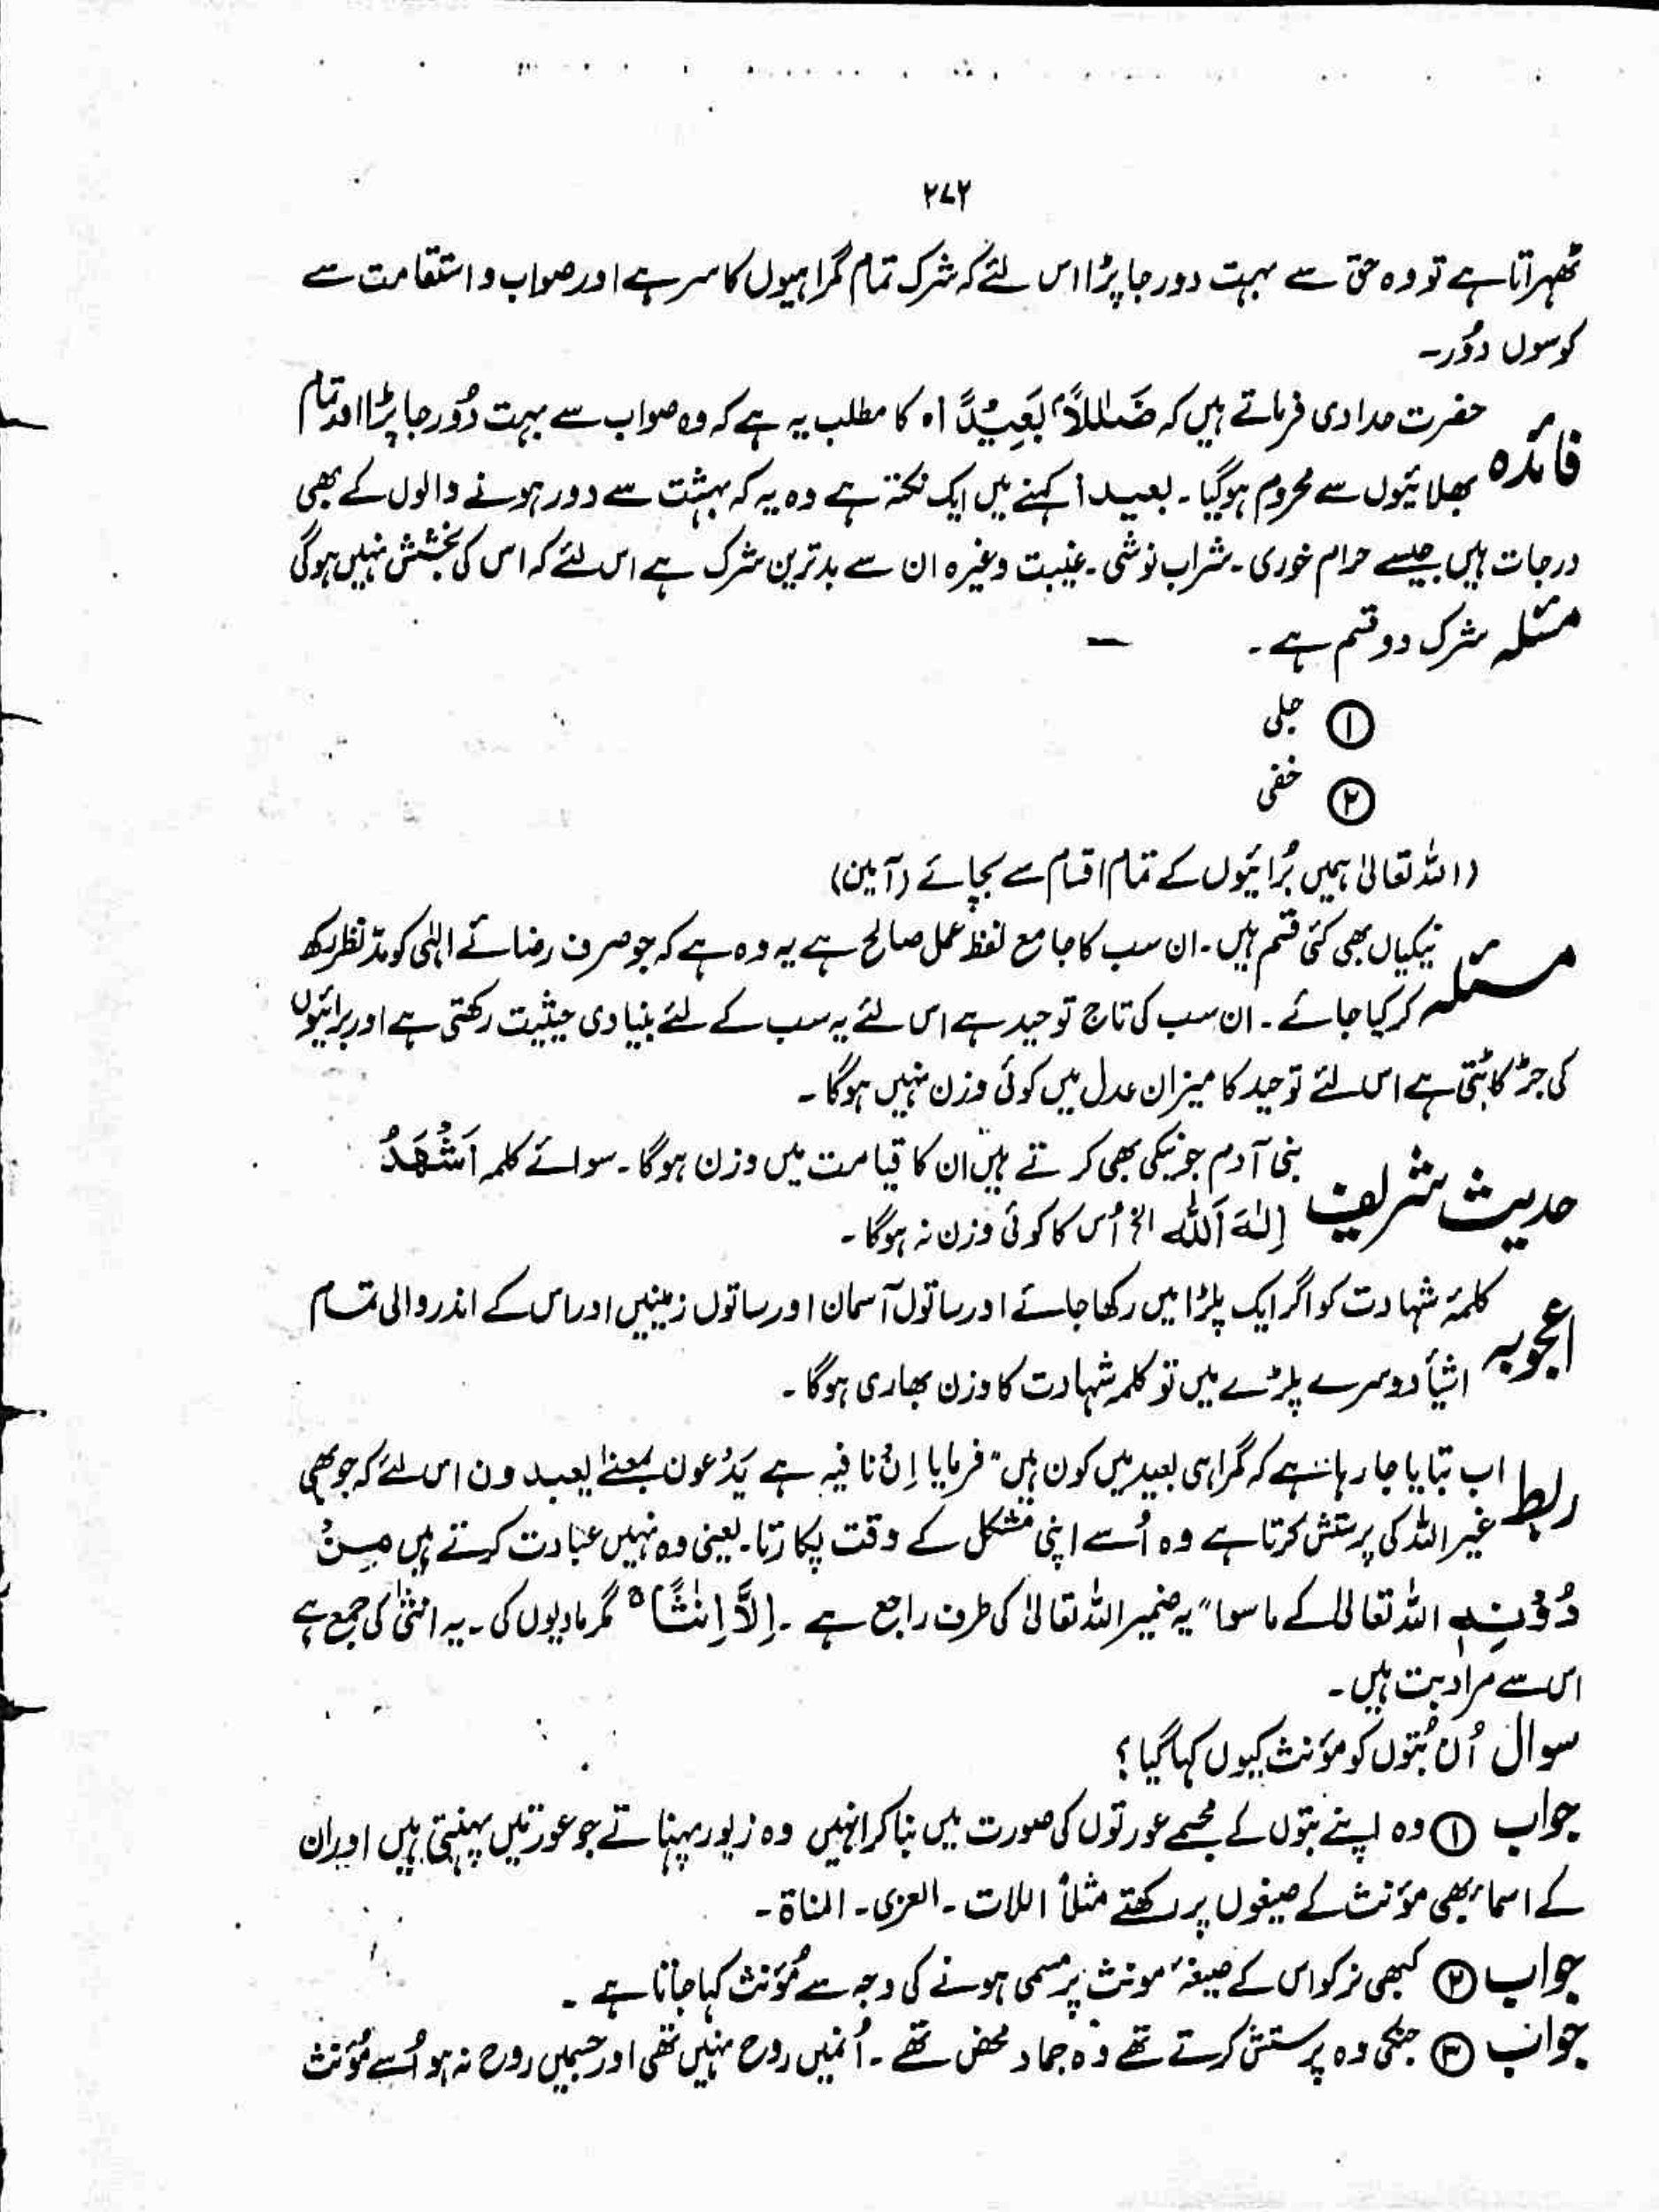 ۲۷۲
ٹھہراتا ہے تو وہ حق سے بہت دور جا پڑا اس لئے کہ شرک تمام گمراہیوں کا سر ہے اور صواب و استقامت سے
کوسوں دُور۔
فائدہ حضرت مدادی فرماتے ہیں کہ ضَلٰلاً بَعِیْدًا ہ کا مطلب یہ ہے کہ وہ صواب سے بہت دُور جا پڑا اور تمام
بھلائیوں سے محروم ہوگیا۔ بعیداً کہنے میں ایک نکتہ ہے وہ یہ کہ بہشت سے دور ہونے والوں کے بھی
درجات ہیں جیسے حرام خوری۔ شراب نوشی۔ غیبت وغیرہ ان سے بدترین شرک ہے اس لئے کہ اس کی بخشش نہیں ہوگی
مسئلہ شرک دو قسم ہے۔ —
① جلی
② خفی
(اللہ تعالیٰ ہمیں بُرائیوں کے تمام اقسام سے بچائے (آمین)
مسئلہ نیکیاں بھی کئی قسم ہیں۔ ان سب کا جامع لفظ عمل صالح ہے یہ وہ ہے کہ جو صرف رضائے الہٰی کو مدّنظر رکھ
کر کیا جائے۔ ان سب کی تاج توحید ہے اس لئے یہ سب کے لئے بنیادی حیثیت رکھتی ہے اور برائیوں
کی جڑ کاٹتی ہے اس لئے توحید کا میزان عدل میں کوئی وزن نہیں ہوگا۔
حدیث شریف بنی آدم جو نیکی بھی کرتے ہیں ان کا قیامت میں وزن ہوگا۔ سوائے کلمہ اَشْھَدُ
اِلٰہَ اَللّٰہ الخ اُس کا کوئی وزن نہ ہوگا۔
اعجوبہ کلمۂ شہادت کو اگر ایک پلڑا میں رکھا جائے اور ساتوں آسمان اور ساتوں زمینیں اور اس کے اندر والی تمام
اشیأ دوسرے پلڑے میں تو کلمہ شہادت کا وزن بھاری ہوگا۔
ربط اب بتایا جا رہا ہے کہ گمراہی بعید میں کون ہیں" فرمایا اِنْ نافیہ ہے یَدْعون بمعنےٰ یعبدون اس لئے کہ جو بھی
غیر اللہ کی پرستش کرتا ہے وہ اُسے اپنی مشکل کے وقت پکارتا۔ یعنی وہ نہیں عبادت کرتے ہیں مِنْ
دُوْنِہٖ اللہ تعالیٰ کے ماسوا" یہ ضمیر اللہ تعالیٰ کی طرف راجع ہے۔ اِلاَّ اِنٰثًا ہ مگر مادیوں کی۔ یہ انثیٰ کی جمع ہے
اس سے مراد بت ہیں۔
سوال اُن بُتوں کو مؤنث کیوں کہا گیا؟
جواب ① وہ اپنے بتوں کے مجسمے عورتوں کی صورت میں بنا کر انہیں وہ زیور پہناتے جو عورتیں پہنتی ہیں اور ان
کے اسما بھی مؤنث کے صیغوں پر رکھتے مثلاً اللات۔ العزی۔ المناۃ۔
جواب ② کبھی نر کو اس کے صیغۂ مونث پر مسمی ہونے کی وجہ سے مُؤنث کہا جاتا ہے۔
جواب ③ جنکی وہ پرستش کرتے تھے وہ جماد محض تھے۔ اُنمیں روح نہیں تھی اور جسمیں روح نہ ہو اُسے مُؤنث